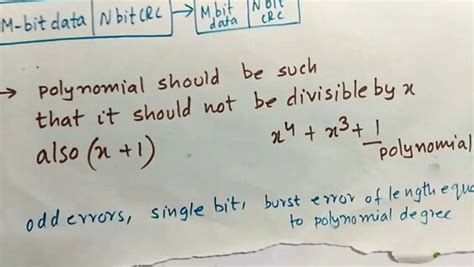 M-bit data | N bit CRC → M bit data | N bit CRC
→ polynomial should be such
that it should not be divisible by x
also (x+1) x⁴ + x³ + 1
polynomial
odd errors, single bit, burst error of length equ
to polynomial degree